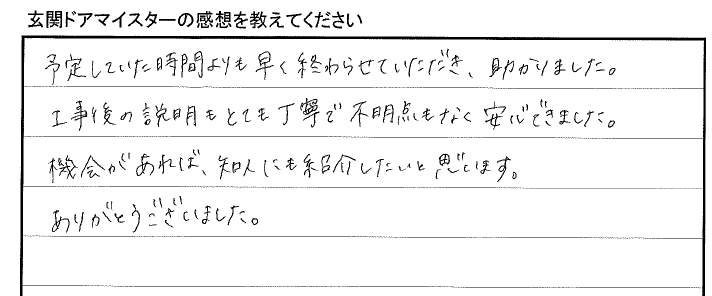 玄関ドアマイスターの感想を教えてください
予定していた時間よりも早く終わらせていただき、助かりました。
工事後の説明もとても丁寧で不明点もなく安心できました。
機会があれば、知人にも紹介したいと思います。
ありがとうございました。